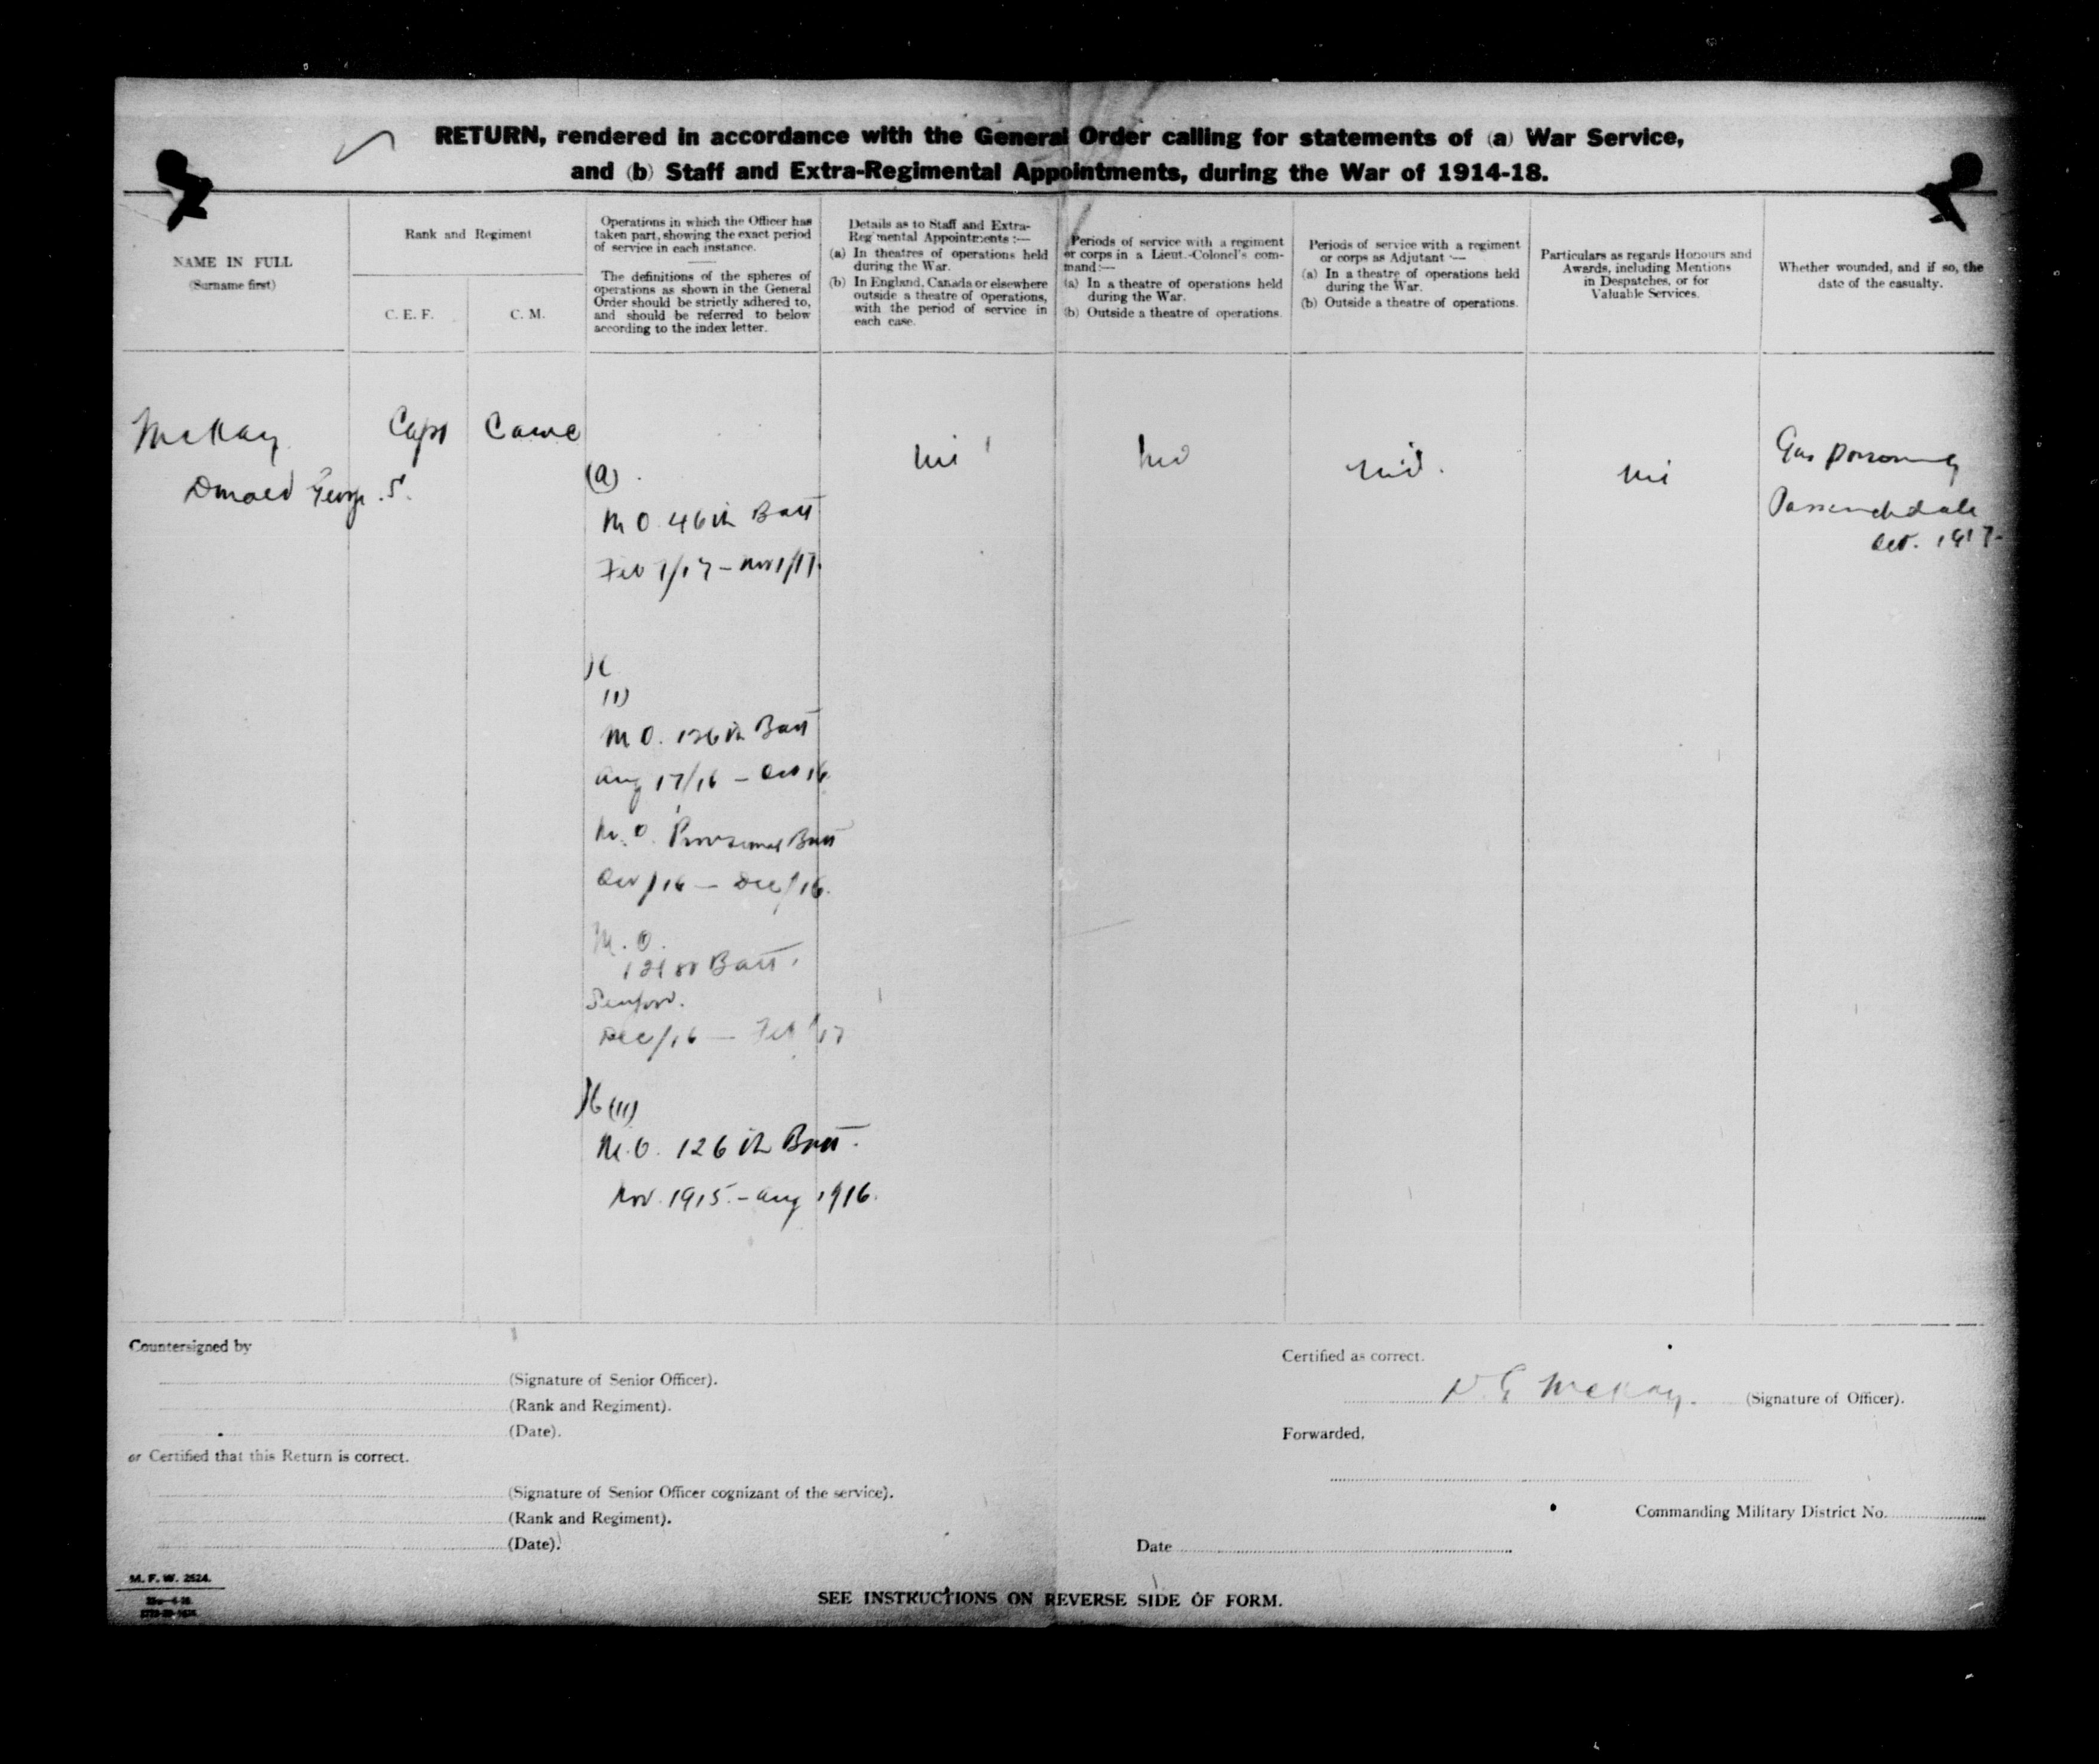 RETURN, rendered in accordance with the General Order calling for statements of (a) War Service,
and (b) Staff and Extra-Regimental Appointments, during the War of 1914-18.
NAME IN FULL
(Surname first)
Rank and Regiment
C. E. F.
C. M.
Operations in which the Officer has
taken part, showing the exact period
of service in each instance.
The definitions of the spheres of
operations as shown in the General
Order should be strictly adhered to,
and should be referred to below
according to the index letter.
Details as to Staff and Extra-
Reg'mental Appointments :—
(a) In theatres of operations held
during the War.
(b) In England, Canada or elsewhere
outside a theatre of operations,
with the period of service in
each case.
Periods of service with a regiment
or corps in a Lieut.-Colonel's com-
mand:—
(a) In a theatre of operations held
during the War.
(b) Outside a theatre of operations.
Periods of service with a regiment
or corps as Adjutant —
(a) In a theatre of operations held
during the War.
(b) Outside a theatre of operations.
Particulars as regards Honours and
Awards, including Mentions
in Despatches, or for
Valuable Services.
Whether wounded, and if so, the
date of the casualty.
McKay
Donald George S.
Capt
Camc
(a)
M O. 46th Batt
Feb 1/17 – Nov 1/17.
(1)
M O. 126th Batt
Aug 17/16 – Oct 16
M. O. Provisional Batt
Oct/16 — Dec/16.
M. O.
Batt.
Dec/16 — Feb/17
(11)
M. O. 126th Batt.
Nov. 1915. – Aug 1916.
nil
nil
nil.
nil
Gas poisoning
Passendale
Oct. 1917-
Countersigned by
(Signature of Senior Officer).
(Rank and Regiment).
(Date).
or Certified that this Return is correct.
(Signature of Senior Officer cognizant of the service).
(Rank and Regiment).
(Date).
Certified as correct.
D. G McKay. (Signature of Officer).
Forwarded,
Commanding Military District No.
Date
M. F. W. 2524.
SEE INSTRUCTIONS ON REVERSE SIDE OF FORM.